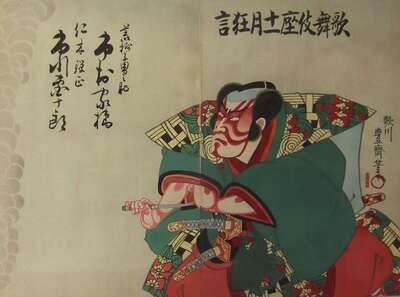 歌舞伎座十一月狂言
荒獅子男之助
市村家橘
仁木弾正
市川團十郎
歌川
豊齋筆